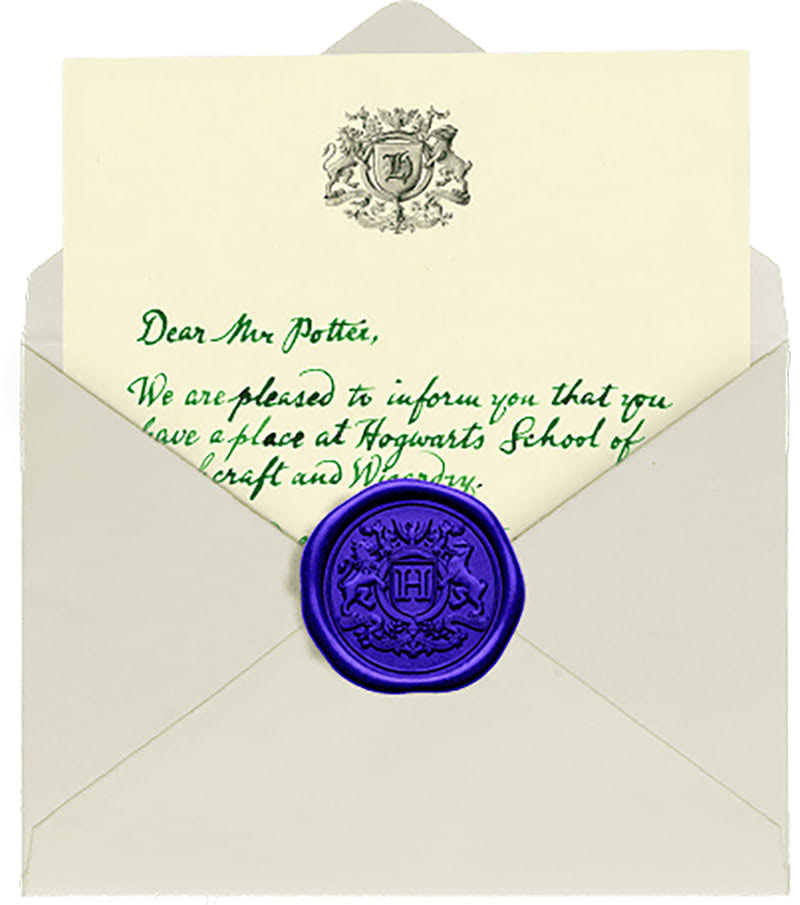 H
Dear Mr Potter,
We are pleased to inform you that you
have a place at Hogwarts School of
craft and Wizardry.
H